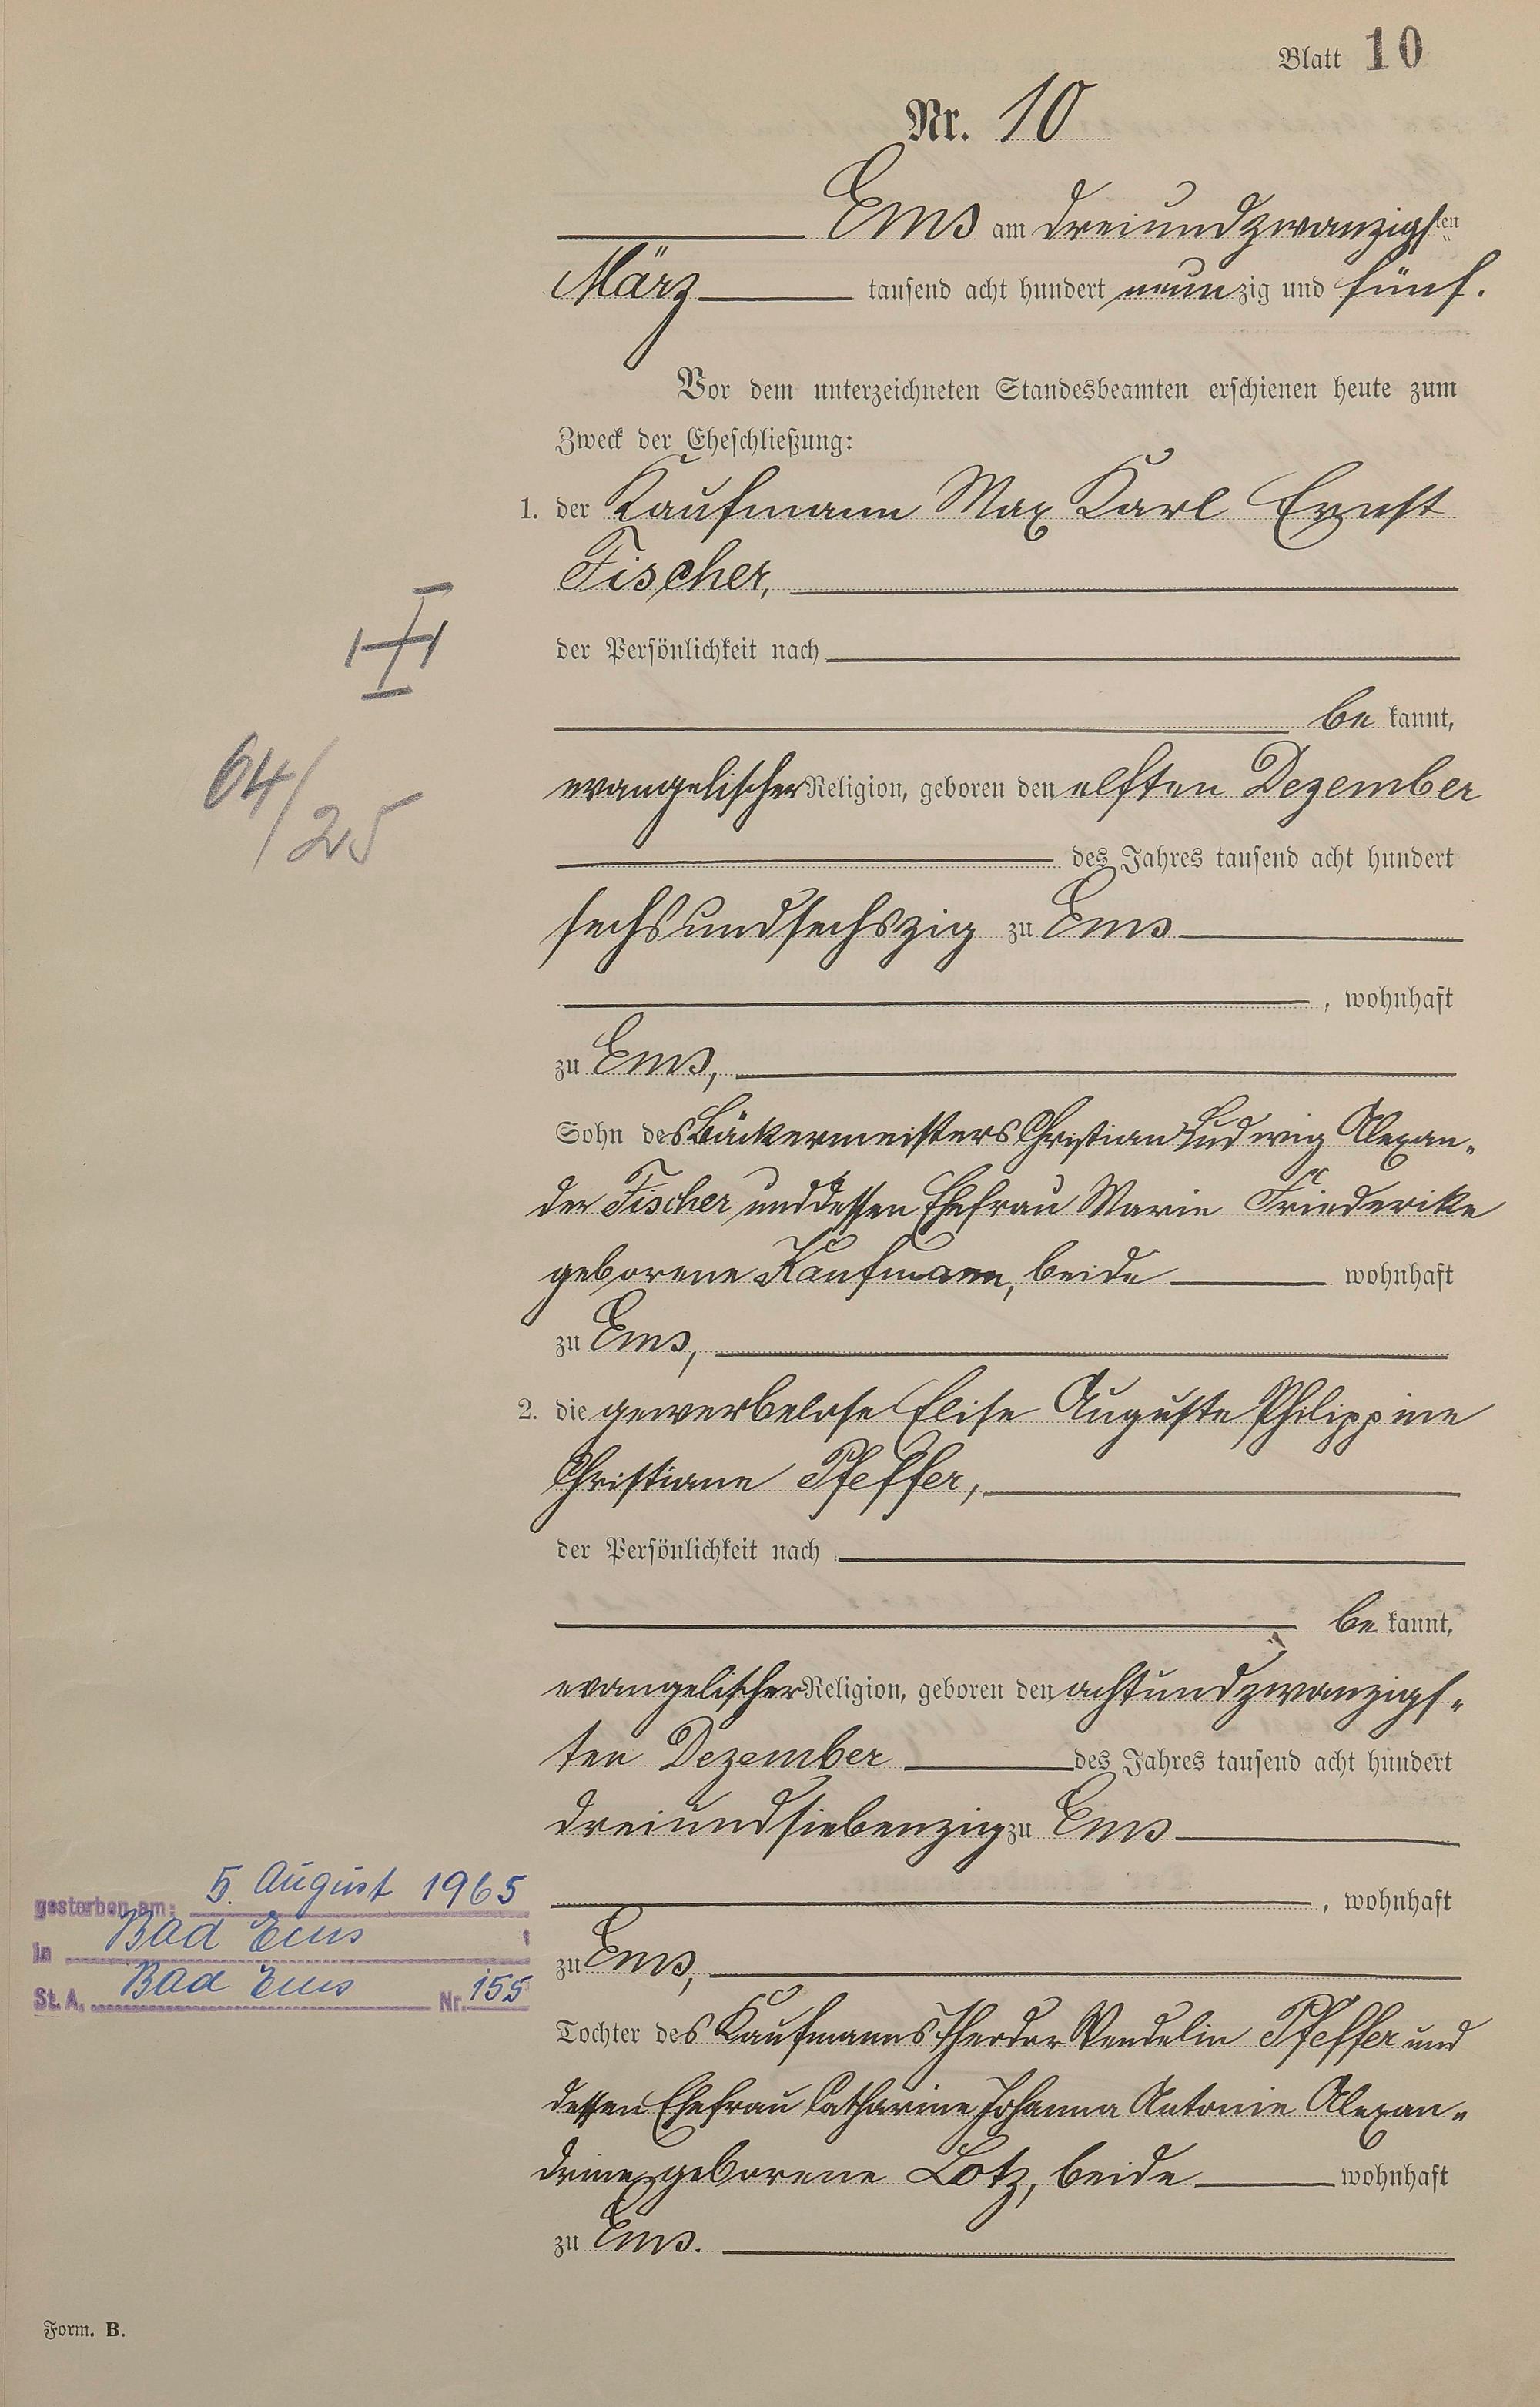 Blatt 10
Nr. 10
Ems am dreiundzwanzigsten
März tausend acht hundert neunzig und fünf.
Vor dem unterzeichneten Standesbeamten erschienen heute zum
Zweck der Eheschließung:
1. der Kaufmann Max Karl Ernst
Fischer,
der Persönlichkeit nach
be kannt,
evangelischer Religion, geboren den elften Dezember
des Jahres tausend acht hundert
sechsundsechszig zu Ems
, wohnhaft
zu Ems,
Sohn des Bäckermeisters Christian Ludwig Alexan-
der Fischer und dessen Ehefrau Marie Friederike
geborene Kaufmann, beide wohnhaft
zu Ems,
2. die gewerbelose Elise Auguste Philippine
Christiane Pfeffer,
der Persönlichkeit nach
be kannt,
evangelischer Religion, geboren den achtundzwanzigs-
ten Dezember des Jahres tausend acht hundert
dreiundsiebenzig zu Ems
, wohnhaft
zu Ems,
Tochter des Kaufmanns Theodor Wendelin Pfeffer und
dessen Ehefrau Catharine Johanna Antonie Alexan-
drine geborene Lotz, beide wohnhaft
zu Ems.
64/25
gestorben am: 5. August 1965
in Bad Ems
St. A. Bad Ems Nr. 155
Form. B.